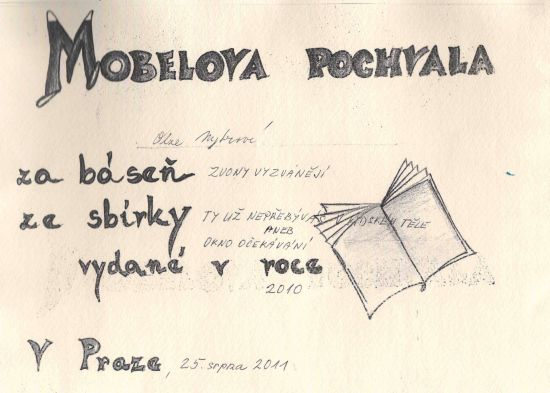 MOBELOVA POCHVALA
Olze Nytrové
za báseň ZVONY VYZVÁNĚJÍ
ze sbírky TY UŽ NEPŘEBÝVÁŠ V LIDSKÉM TĚLE
ANEB
OKNO OČEKÁVÁNÍ
vydané v roce
2010
V Praze, 25. srpna 2011